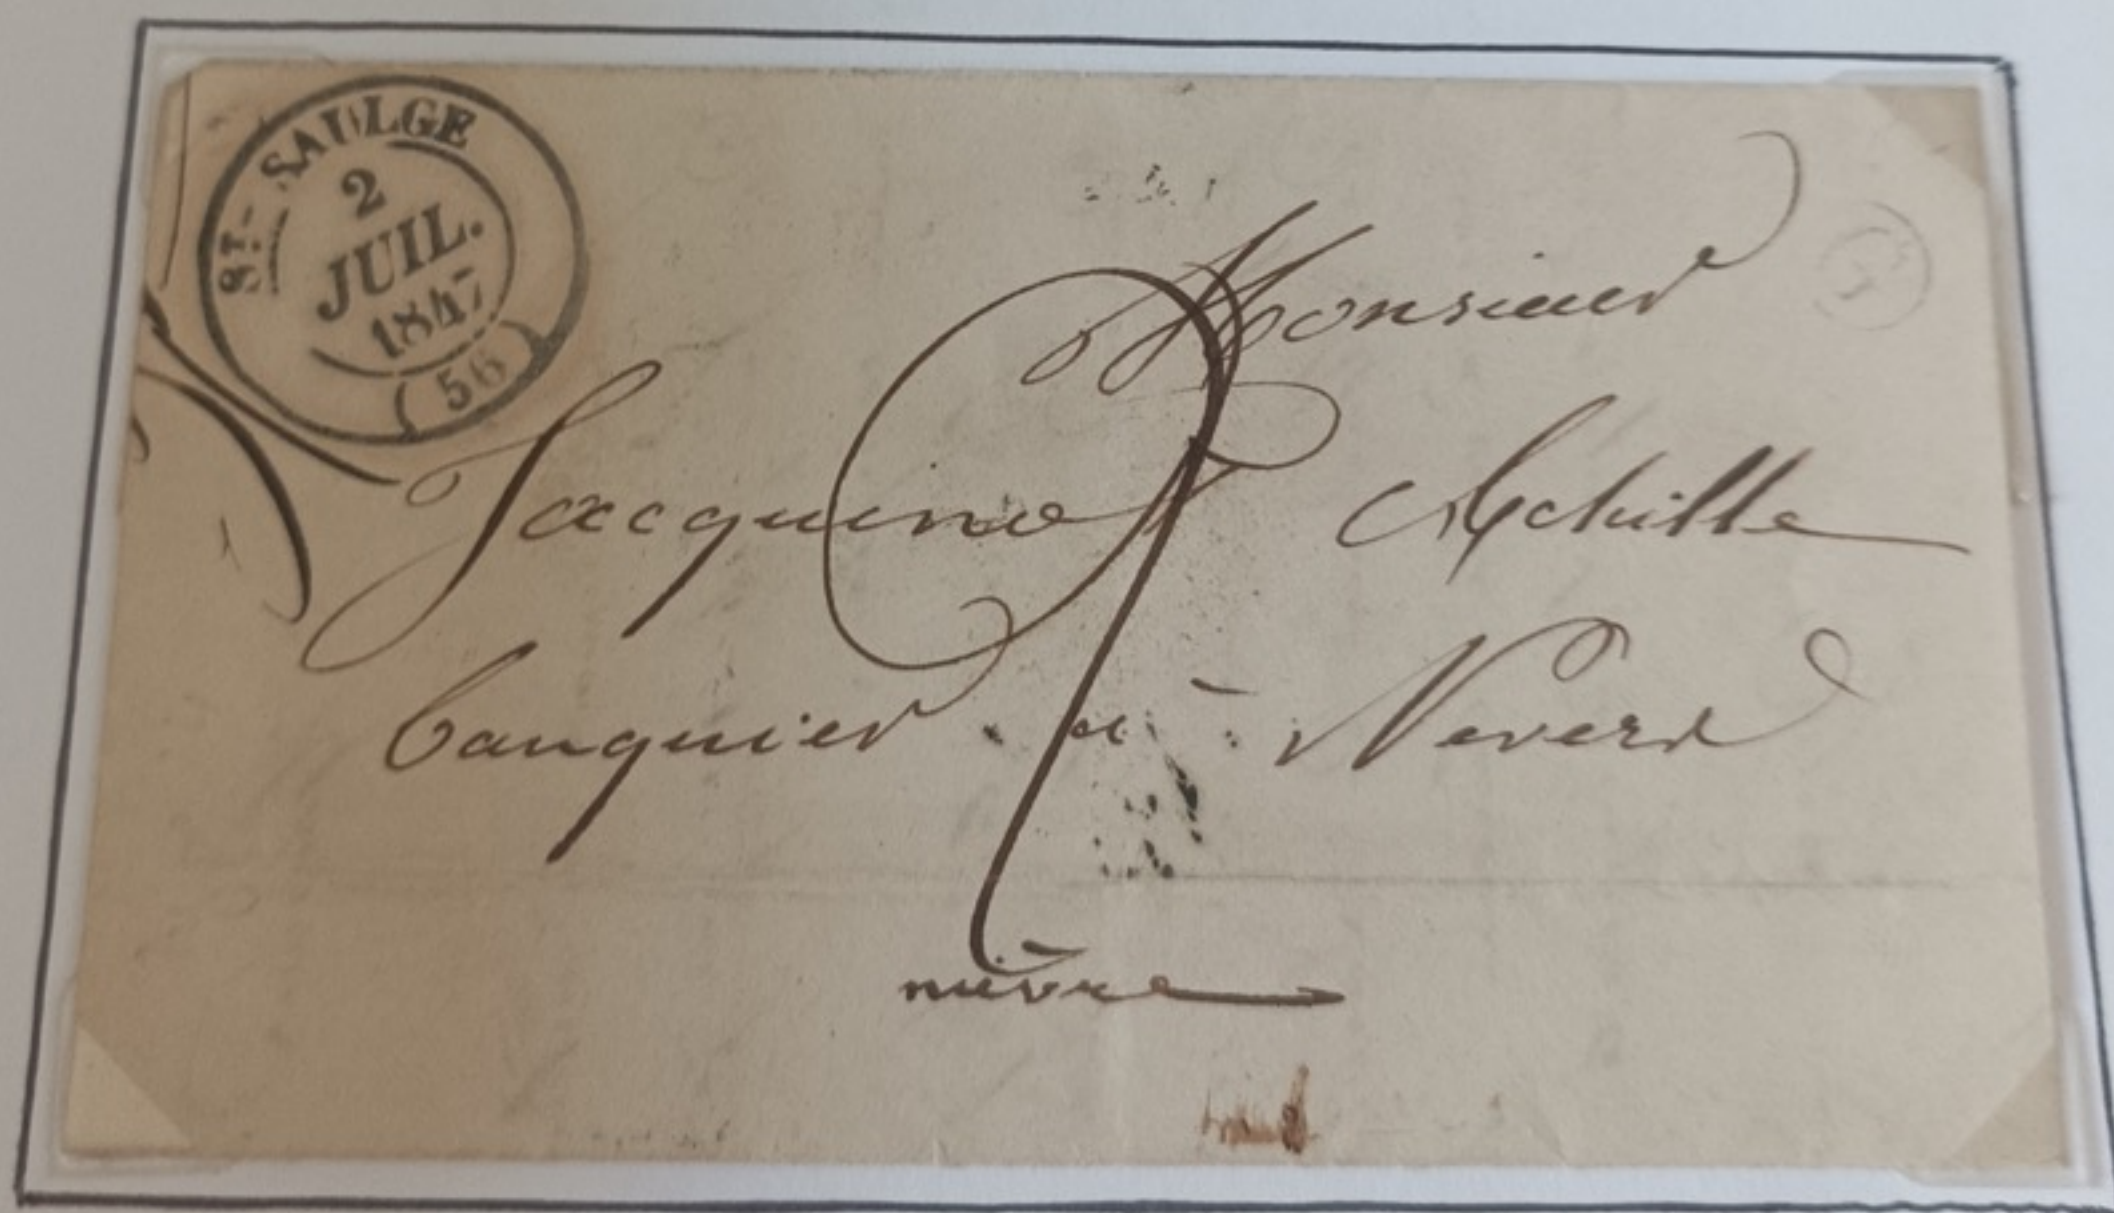 ST-SAULGE
2
JUIL.
1847
(56)
Monsieur
Jacquinot Achille
banquier à Nevers
2
nièvre